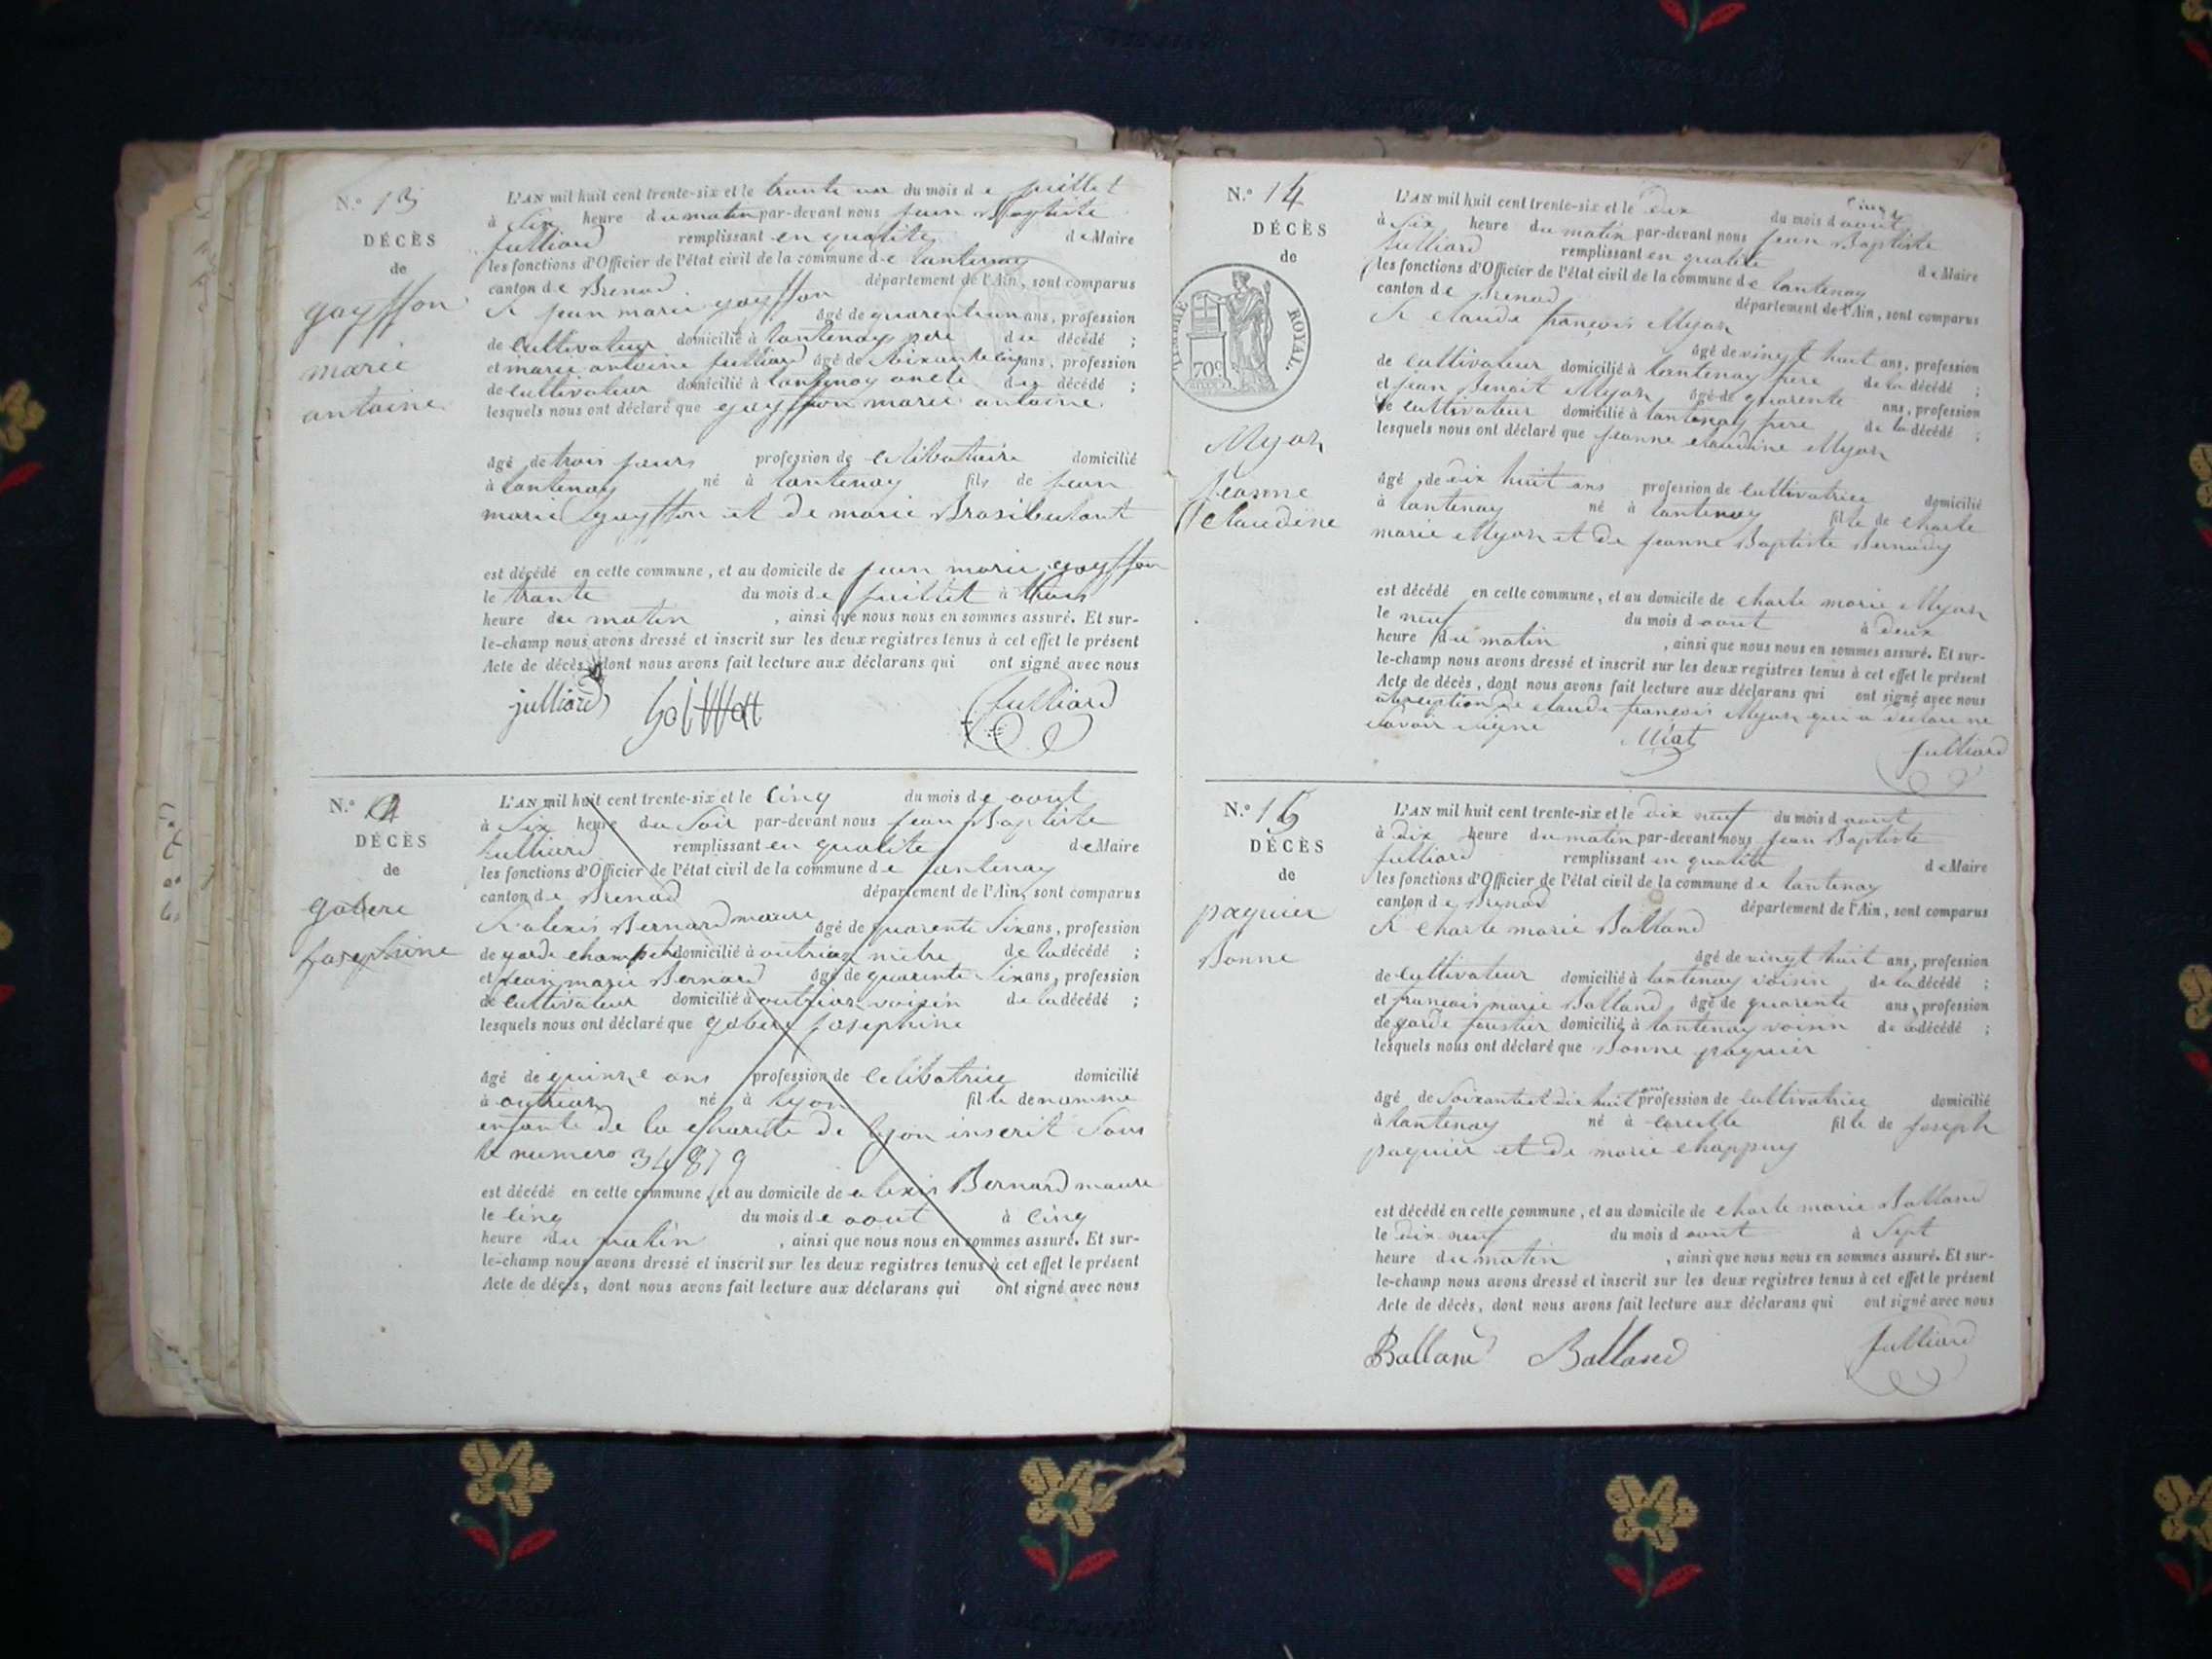 N.º 13
DÉCÈS
de
gayffon
marie
antoine
L'AN mil huit cent trente-six et le trante un du mois de juillet
à Six heure du matin par-devant nous jean Baptiste
Julliard remplissant en qualite de Maire
les fonctions d'Officier de l'état civil de la commune de lantenay
canton de Brenod département de l'Ain, sont comparus
Sr jean marie gayffon âgé de quarente un ans, profession
de Cultivateur domicilié à lantenay pere du décédé ;
et marie antoine julliard âgé de Soixante cinq ans, profession
de cultivateur domicilié à lantenay oncle du décédé ;
lesquels nous ont déclaré que gayffon marie antoine
âgé de trois jours profession de Celibataire domicilié
à lantenay né à lantenay fils de jean
marie gayffon et de marie Brasibulant
est décédé en cette commune, et au domicile de jean marie gayffon
le trante du mois de juillet à trois
heure du matin , ainsi que nous nous en sommes assuré. Et sur-
le-champ nous avons dressé et inscrit sur les deux registres tenus à cet effet le présent
Acte de décès, dont nous avons fait lecture aux déclarans qui ont signé avec nous
julliard Julliard
N.º
DÉCÈS
de
gobere
josephine
L'AN mil huit cent trente-six et le Cinq du mois de aout
à Six heure du Soir par-devant nous jean Baptiste
Julliard remplissant en qualite de Maire
les fonctions d'Officier de l'état civil de la commune de lantenay
canton de Brenod département de l'Ain, sont comparus
Sr alexis Bernard maure âgé de quarente Six ans, profession
de garde champetre domicilié à outriaz mètre de la décédé ;
et jean marie Bernard âgé de quarente Six ans, profession
de Cultivateur domicilié à outriaz voisin de la décédé ;
lesquels nous ont déclaré que gobere josephine
âgé de quinze ans profession de Celibatrice domicilié
à outriaz né à lyon fille de nomme
enfante de la charite de lyon inscrit Sous
le numero 34879
est décédé en cette commune, et au domicile de alexis Bernard maure
le Cinq du mois de aout à Cinq
heure du matin , ainsi que nous nous en sommes assuré. Et sur-
le-champ nous avons dressé et inscrit sur les deux registres tenus à cet effet le présent
Acte de décès, dont nous avons fait lecture aux déclarans qui ont signé avec nous
N.º 14
DÉCÈS
de
TIMBRE ROYAL.
70c
Myon
jeanne
Claudine
L'AN mil huit cent trente-six et le dix du mois d aout
à Six heure du matin par-devant nous jean Baptiste
Julliard remplissant en qualite de Maire
les fonctions d'Officier de l'état civil de la commune de lantenay
canton de Brenod département de l'Ain, sont comparus
Sr claude françois Myon âgé de vingt huit ans, profession
de cultivateur domicilié à lantenay frere de la décédé ;
et jean Benoit Myon âgé de quarente ans, profession
de cultivateur domicilié à lantenay frere de la décédé ;
lesquels nous ont déclaré que jeanne claudine Myon
âgé de dix huit ans profession de cultivatrice domicilié
à lantenay né à lantenay fille de charle
marie Myon et de jeanne Baptiste Bernardy
est décédé en cette commune, et au domicile de charle marie Myon
le neuf du mois d aout à deux
heure du matin , ainsi que nous nous en sommes assuré. Et sur-
le-champ nous avons dressé et inscrit sur les deux registres tenus à cet effet le présent
Acte de décès, dont nous avons fait lecture aux déclarans qui ont signé avec nous
claude françois Myon qui a declare ne
Savoir Signé
Julliard
N.º 15
DÉCÈS
de
paquier
Bonne
L'AN mil huit cent trente-six et le dix neuf du mois d aout
à dix heure du matin par-devant nous jean Baptiste
Julliard remplissant en qualite de Maire
les fonctions d'Officier de l'état civil de la commune de lantenay
canton de Brenod département de l'Ain, sont comparus
Sr charle marie Balland âgé de vingt huit ans, profession
de cultivateur domicilié à lantenay voisin de la décédé ;
et françois marie Balland âgé de quarente ans, profession
de garde foustier domicilié à lantenay voisin de la décédé ;
lesquels nous ont déclaré que Bonne paquier
âgé de Soixante et dix huit ans profession de cultivatrice domicilié
à lantenay né à corcelle fille de joseph
paquier et de marie chappuy
est décédé en cette commune, et au domicile de charle marie Balland
le dix neuf du mois d aout à Sept
heure du matin , ainsi que nous nous en sommes assuré. Et sur-
le-champ nous avons dressé et inscrit sur les deux registres tenus à cet effet le présent
Acte de décès, dont nous avons fait lecture aux déclarans qui ont signé avec nous
Balland Balland Julliard